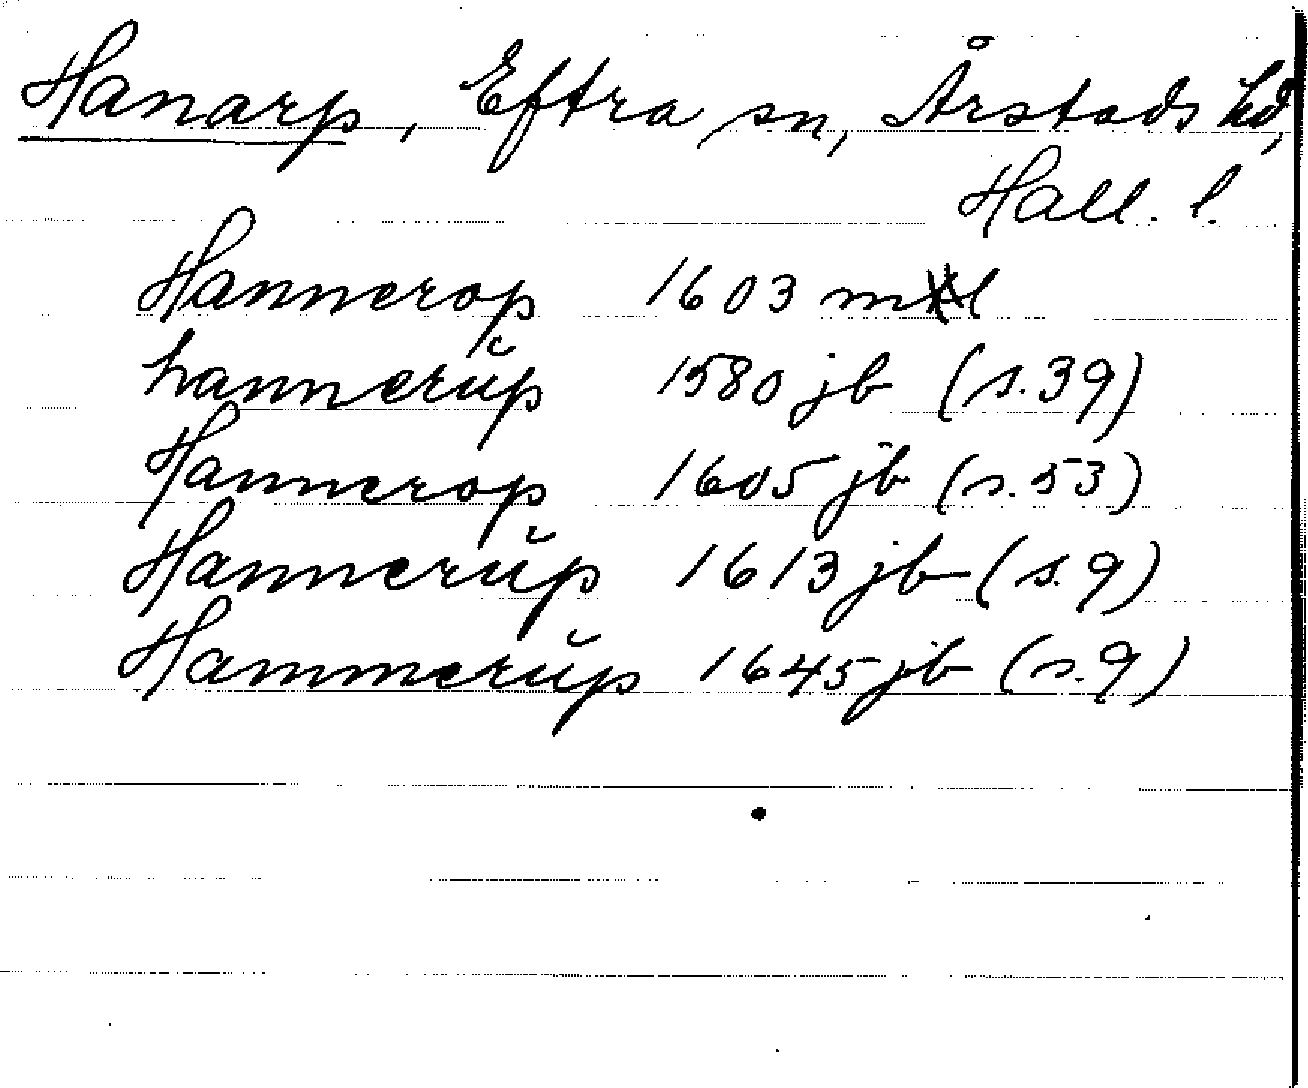 Hanarp, Eftra sn, Årstads hd,
Hall. l.
Hannerop 1603 ml
hannerŭp 1580 jb (s. 39)
Hannerop 1605 jb (s. 53)
Hannerŭp 1613 jb (s. 9)
Hammerŭp 1645 jb (s. 9)